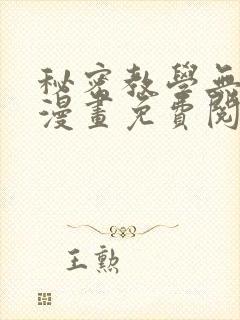 秘密教學無
漫畫免費閱
王勲